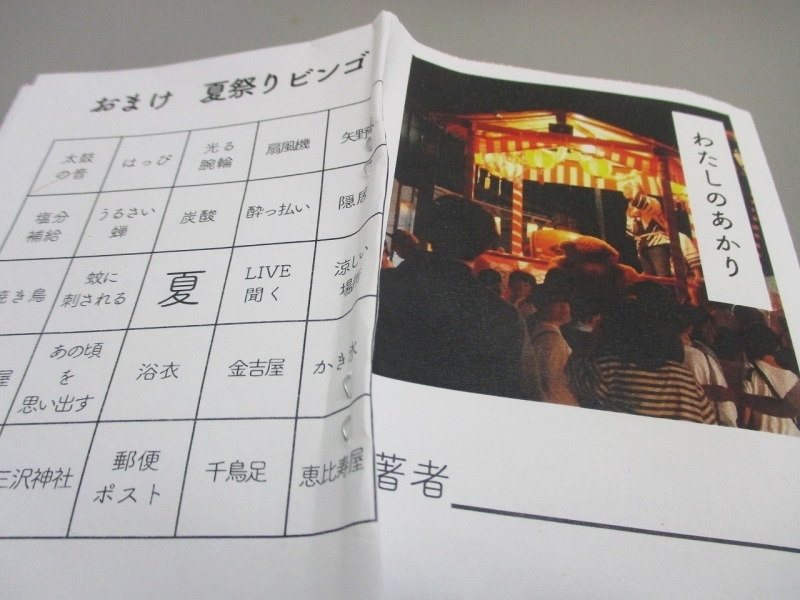 おまけ 夏祭りビンゴ
太鼓
の音
はっぴ
光る
腕輪
扇風機
矢野
塩分
補給
うるさい
蝉
炭酸
酔っ払い
き鳥
蚊に
刺される
夏
LIVE
聞く
涼しい
場所
屋
あの頃
を
思い出す
浴衣
金吉屋
かき氷
三沢神社
郵便
ポスト
千鳥足
恵比寿屋
わたしのあかり
著者